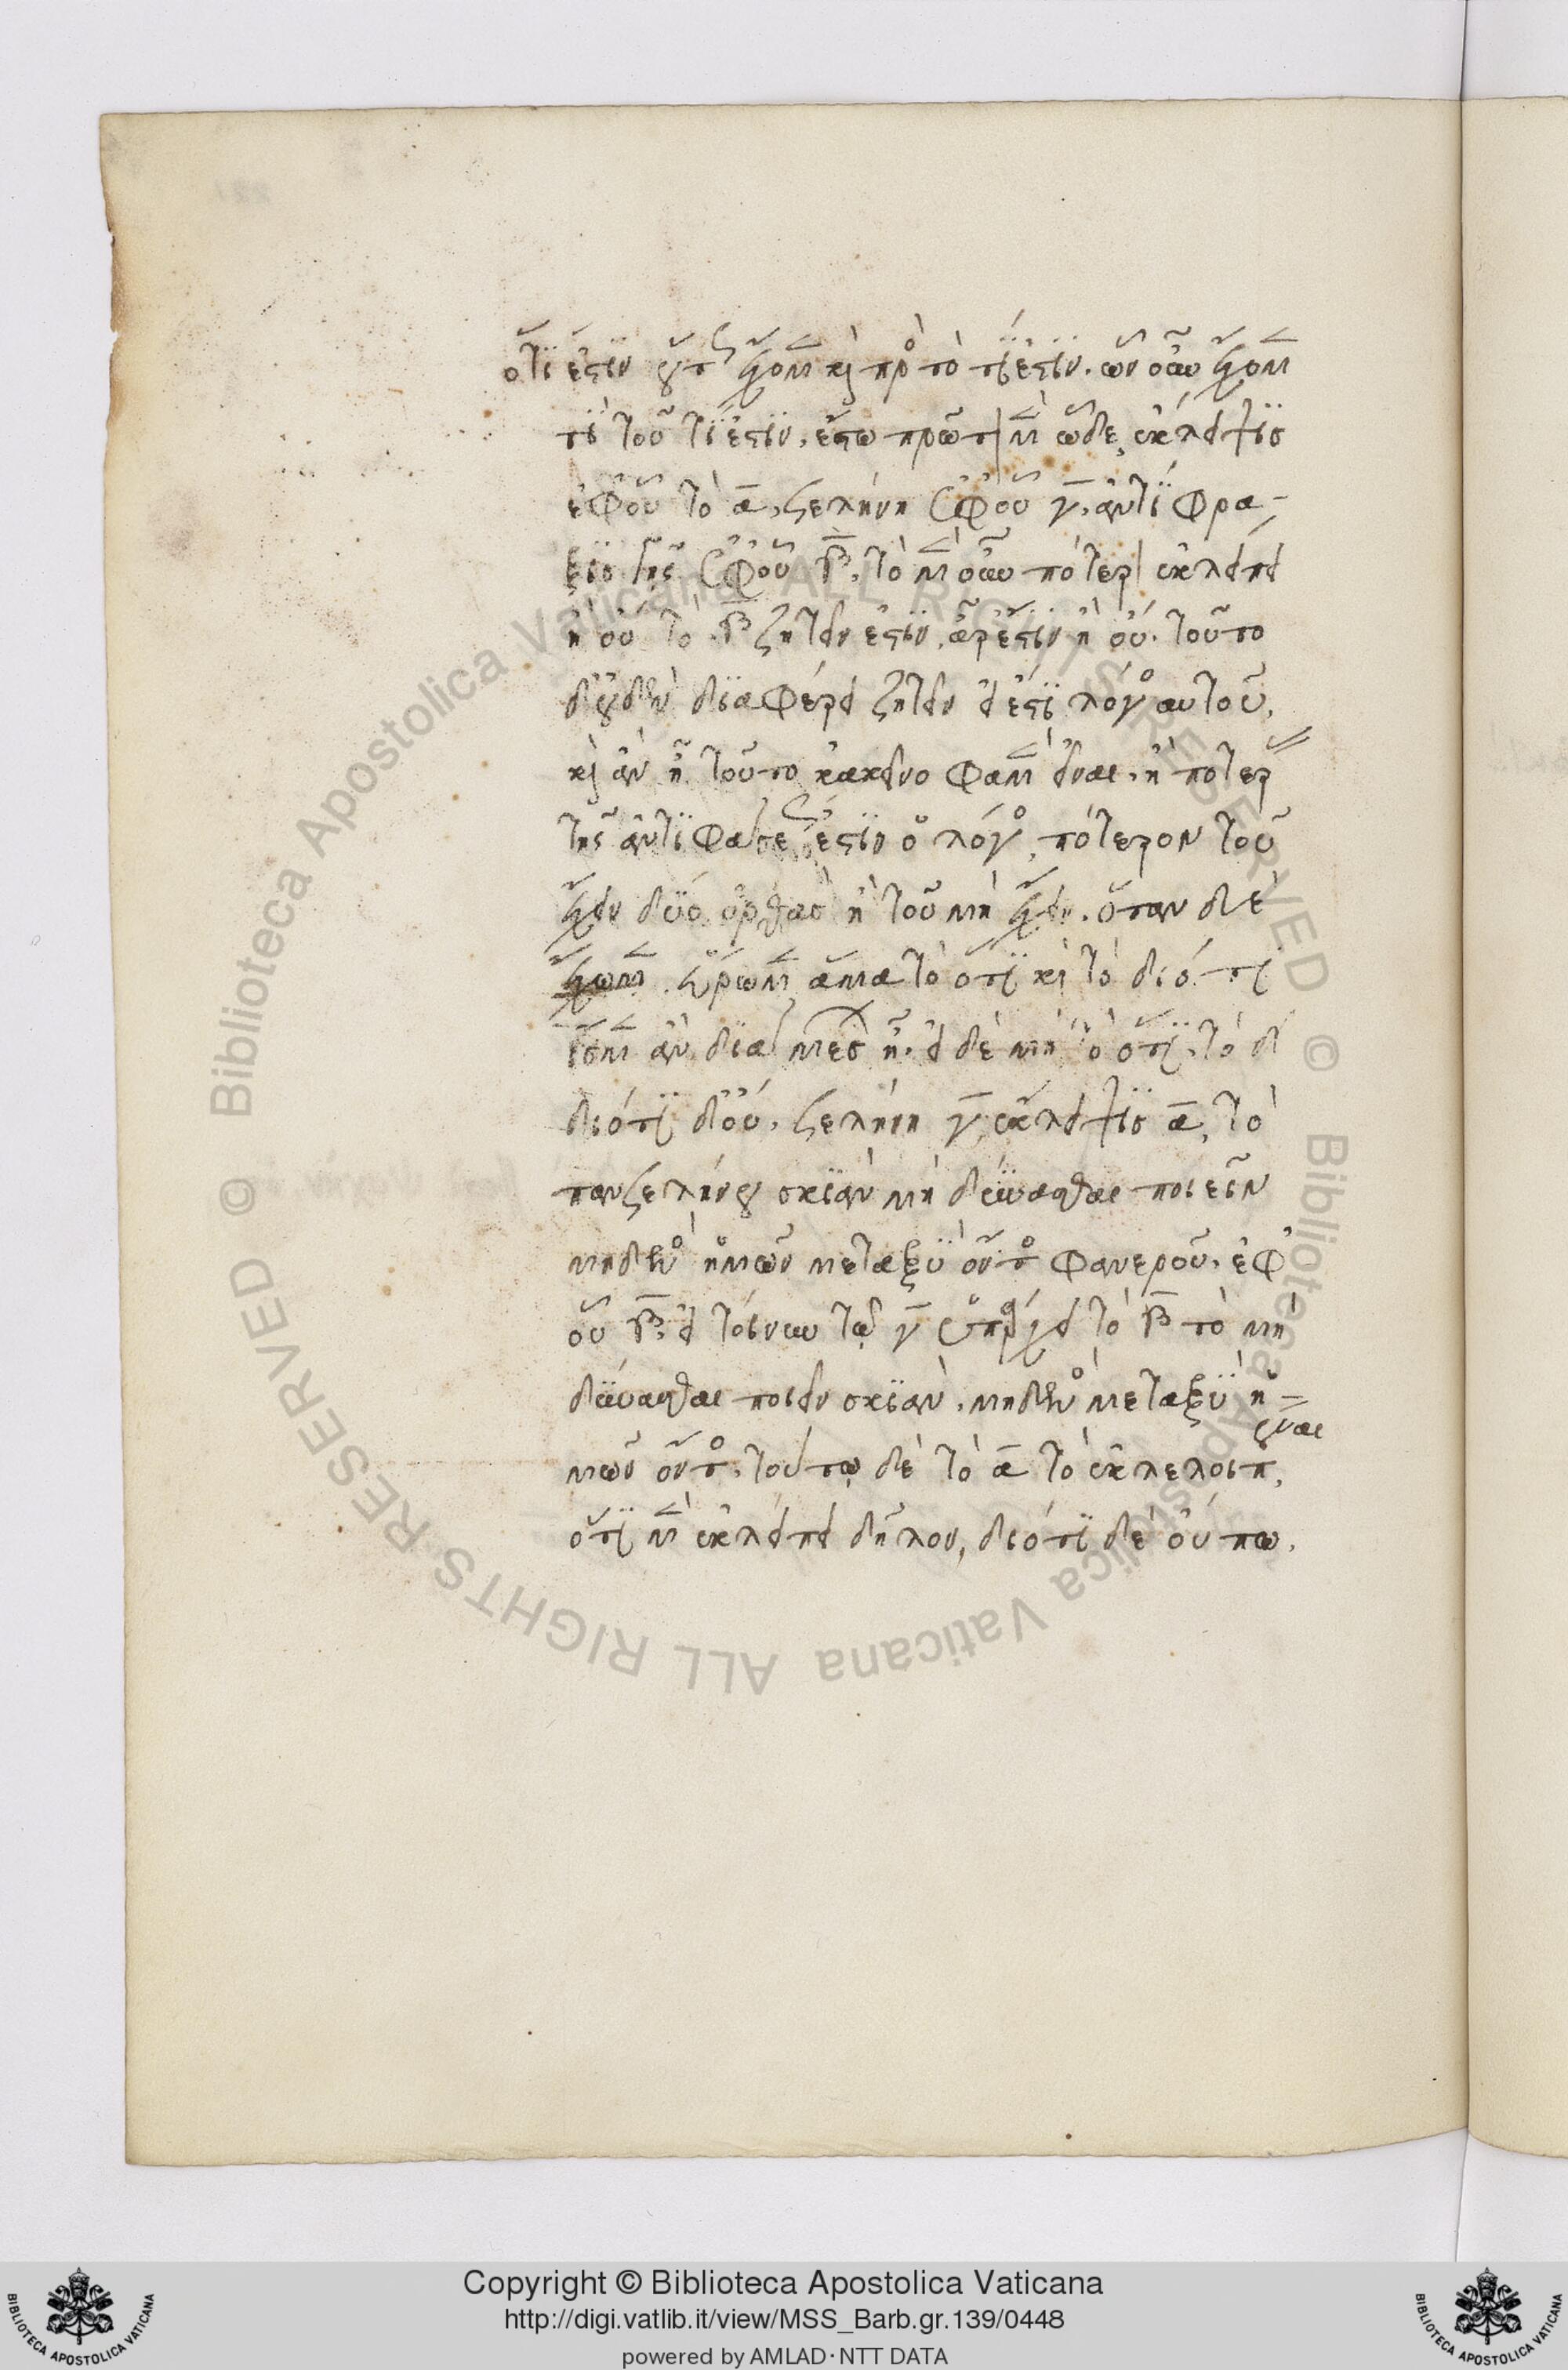 ὅτι ἐστὶν οὕτως ἔχομεν καὶ πρὸς τὸ τί ἐστιν. ὧν οὖν ἔχομεν
τὶ τοῦ τί ἐστιν, ἔστω πρῶτον μὲν ὧδε, ἔκλειψις
ἐφ' οὗ τὸ α, σελήνη ἐφ' οὗ γ, ἀντίφρα-
ξις γῆς ἐφ' οὗ β. τὸ μὲν οὖν πότερον ἐκλείπει
ἢ οὔ τὸ β ζητεῖν ἐστὶν, ἆρ' ἔστιν ἢ οὔ. τοῦτο
δ' οὐδὲν διαφέρει ζητεῖν εἰ ἔστι λόγος αὐτοῦ,
καὶ ἂν ᾖ τοῦτο κἀκεῖνο φαμὲν εἶναι. ἢ ποτέρας
τῆς ἀντιφάσεώς ἐστιν ὁ λόγος, πότερον τοῦ
ἔχειν δύο ὀρθὰς ἢ τοῦ μὴ ἔχειν. ὅταν δὲ
ἔχωμεν. εὕρωμεν ἅμα τὸ ὅτι καὶ τὸ διότι
ἴσμεν ἂν διὰ μέσων ᾖ. εἰ δὲ μὴ τὸ ὅτι. τὸ δὲ
διότι δ' οὔ. σελήνη γ, ἔκλειψις α, τὸ
πανσελήνου σκιὰν μὴ δύνασθαι ποιεῖν
μηδενὸς ἡμῶν μεταξὺ ὄντος φανεροῦ. ἐφ'
οὗ β. εἰ τοίνυν τῷ γ ὑπάρχει τὸ β τὸ μὴ
δύνασθαι ποιεῖν σκιὰν. μηδενὸς μεταξὺ ἡ-
μῶν ὄντος. τούτῳ δὲ τὸ α τὸ ἐκλελοιπέναι
ὅτι μὲν ἐκλείπει δῆλον, διότι δὲ οὔπω.
Copyright © Biblioteca Apostolica Vaticana
http://digi.vatlib.it/view/MSS_Barb.gr.139/0448
powered by AMLAD · NTT DATA
Biblioteca Apostolica Vaticana ALL RIGHTS RESERVED © Biblioteca Apostolica Vaticana ALL RIGHTS RESERVED ©
BIBLIOTECA APOSTOLICA VATICANA
BIBLIOTECA APOSTOLICA VATICANA